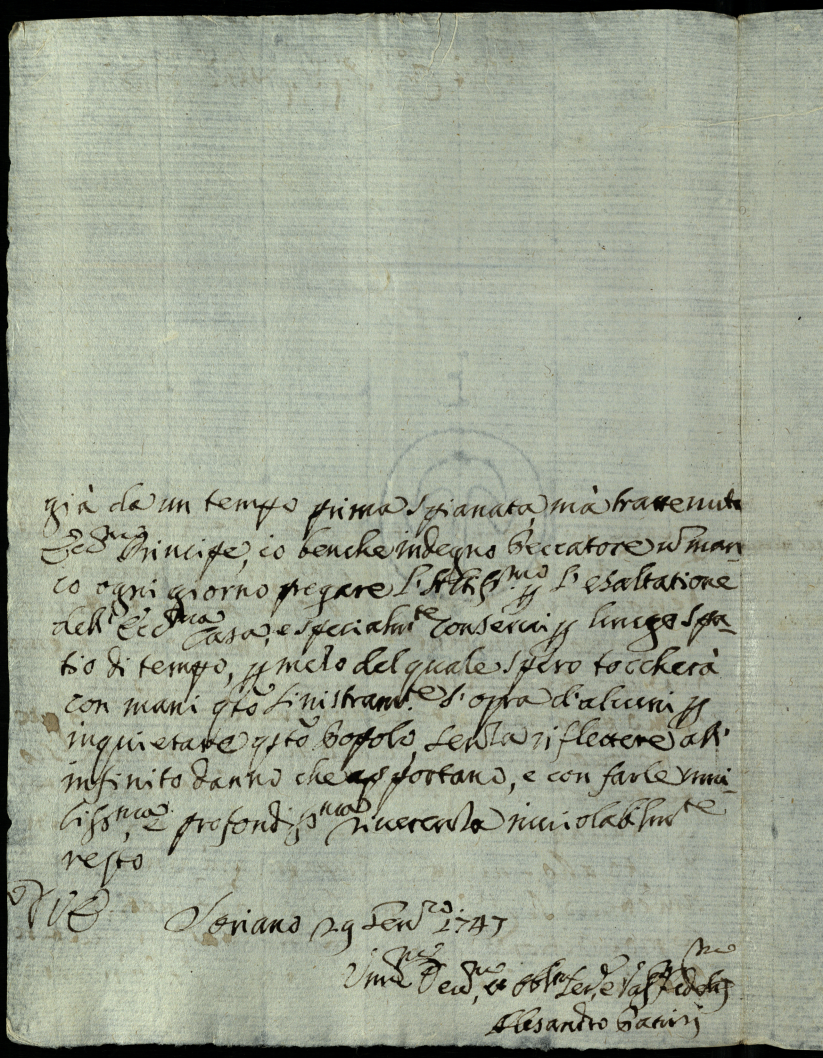 già da un tempo prima spianata, mà trattenuta
Ecc.mo Principe, io benche indegno Peccatore ñ man
co ogni giorno pregare l'Altiss.mo p l'esaltatione
dell'Ecc.ma Casa, e specialm.te conservi p lungo spa-
tio di tempo, p mezo del quale spero toccherà
con mani q.to sinistram.te s'opra d'alcuni p
inquietare q.sto Popolo senza riflettere all'
infinito danno che apportano, e con farle umi-
liss.ma, e profondiss.ma riverenza inviolabilm.te
resto
D V E Soriano 29 Genn.ro 1747
Um.e Dev.mo, et obl.mo Ser.e e Vass.
Alesandro